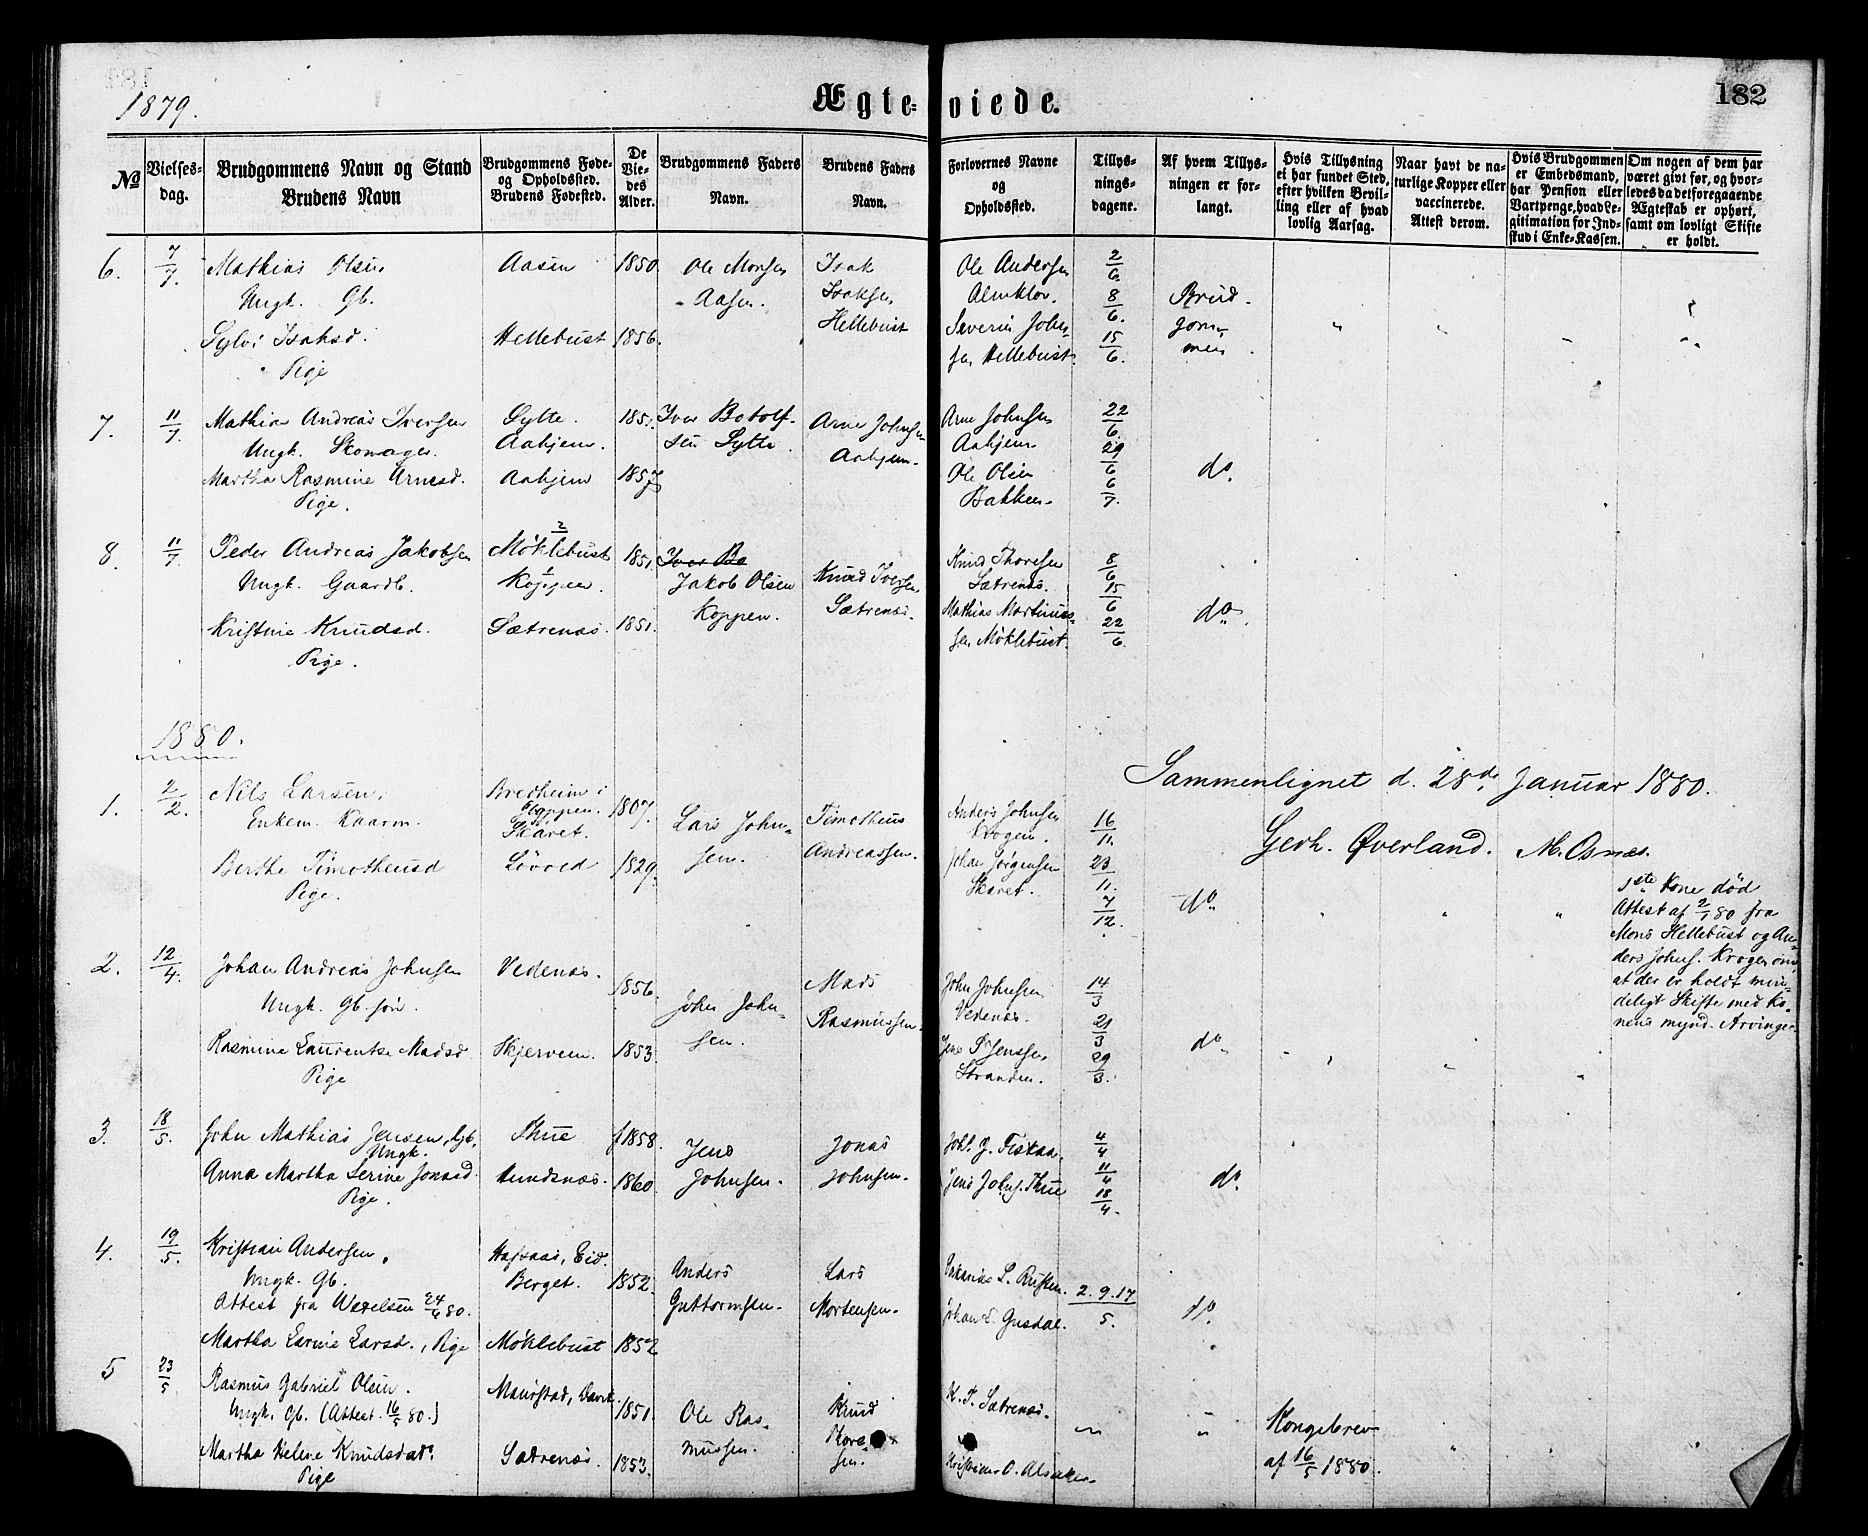 1879.
Ægteviede.
182
№
Vielses-
dag.
Brudgommens Navn og Stand
Brudens Navn
Brudgommens Føde-
og Opholdssted.
Brudens Fødested.
De
Vie-
des
Alder.
Brudgommens Faders
Navn.
Brudens Faders
Navn.
Forlovernes Navne
og
Opholdssted.
Tillys-
nings-
dagene.
Af hvem Tillys-
ningen er for-
langt.
Hvis Tillysning
ei har fundet Sted,
efter hvilken Bevil-
ling eller af hvad
lovlig Aarsag.
Naar havt de na-
turlige Kopper eller
vaccinerede.
Attest derom.
Hvis Brudgommen
er Embedsmand,
har Pension eller
Vartpenge, hvad Le-
gitimation for Ind-
skud i Enke-Kassen.
Om nogen af dem har
været givt før, og hvor-
ledes da det foregaaende
Ægteskab er ophørt,
samt om lovligt Skifte
er holdt.
6.
7/7.
Mathias Olsen
Ungk. Gb.
Sylvi Isaksd.
Pige
Aasen
Hellebust
1850.
1856.
Ole Monsen
Aasen.
Isak
Isaksen
Hellebust
Ole Andersen
Almklov.
Severin John-
sen Hellebust.
2/6
8/6.
15/6.
Brud-
gom-
men
7.
11/7.
Mathias Andreas Iversen
Ungk. Skomager.
Martha Rasmine Arnesd.
Pige.
Sytte.
Aahjem.
Aahjem
1851.
1857
Iver Botolf-
sen Sytte.
Arne Johnsen
Aahjem.
Arne Johnsen
Aahjem
Ole Olsen
Bakken.
22/6
29/6
6/7.
do.
8.
11/7.
Peder Andreas Jakobsen
Ungk. Gaardb.
Kristine Knudsd.
Pige.
2
Møklebust
1
Koppen.
Sætrenæs.
1851.
1851.
Iver Bo
Jakob Olsen
Koppen.
Knud Iversen
Sætrenæs.
Knud Thoresen
Sætrenæs.
Mathias Martinus-
sen Møklebust.
8/6
15/6
22/6.
do.
1880.
Sammenlignet d. 28de Januar 1880.
Gerh. Øverland. M. Osnæs.
1.
2/2.
Nils Larsen,
Enkem. Kaarm.
Berthe Timotheusd
Pige.
Bredheim i
Gloppen.
Skaret.
Løvoed
1807.
1829.
Lars John-
sen.
Timotheus
Andreassen.
Anders Johnsen
Krogen.
Johan Jørgensen
Skaret.
16/11.
23/11.
7/12.
do.
1ste Kone død
Attest af 2/1 80 fra
Mons Hellebust og An-
ders Johns. Krogen om,
at der er holdt min-
deligt Skifte med Ko-
nens mynd. Arvinger.
2.
12/4.
Johan Andreas Johnsen
Ungk. Gb. søn.
Rasmine Laurentse Madsd.
Pige
Vedenæs.
Skjervem.
1856.
1853.
John John-
sen.
Mads
Rasmussen.
John Johnsen
Vedenæs.
Jens P. Jenssen
Stranden.
14/3
21/3
29/3.
do.
3.
18/5.
John Mathias Jensen, Gb.,
Ungk.
Anna Martha Serine Jonasd.
Pige.
Thue
Hundsnæs.
f1858.
1860.
Jens
Johnsen.
Jonas
Johnsen.
Johs. J. Fiskaa.
Jens Johns. Thue
4/4
11/4
18/4.
do.
4.
19/5.
Kristian Andersen,
Ungk. Gb.
Attest fra Wexelsen 24/4 80.
Martha Larine Larsd., Pige
Berget.
Møklebust
1852.
1852
Anders
Guttormsen.
Lars
Mortensen.
Johan L. Gusdal.
2.9.17/5.
do.
5
23/5
Rasmus Gabriel Olsen.
Ungk. Gb. (Attest. 16/5 80.)
Martha Helene Knudsdatr
Pige
Maurstad, Davik.
Sætrenæs.
1851.
1853.
Ole Ras-
mussen.
Knud
Thore-
sen.
K. T. Sætrenæs.
Kristian O. Alsaker.
Kongebrev
af 16/5 1880.